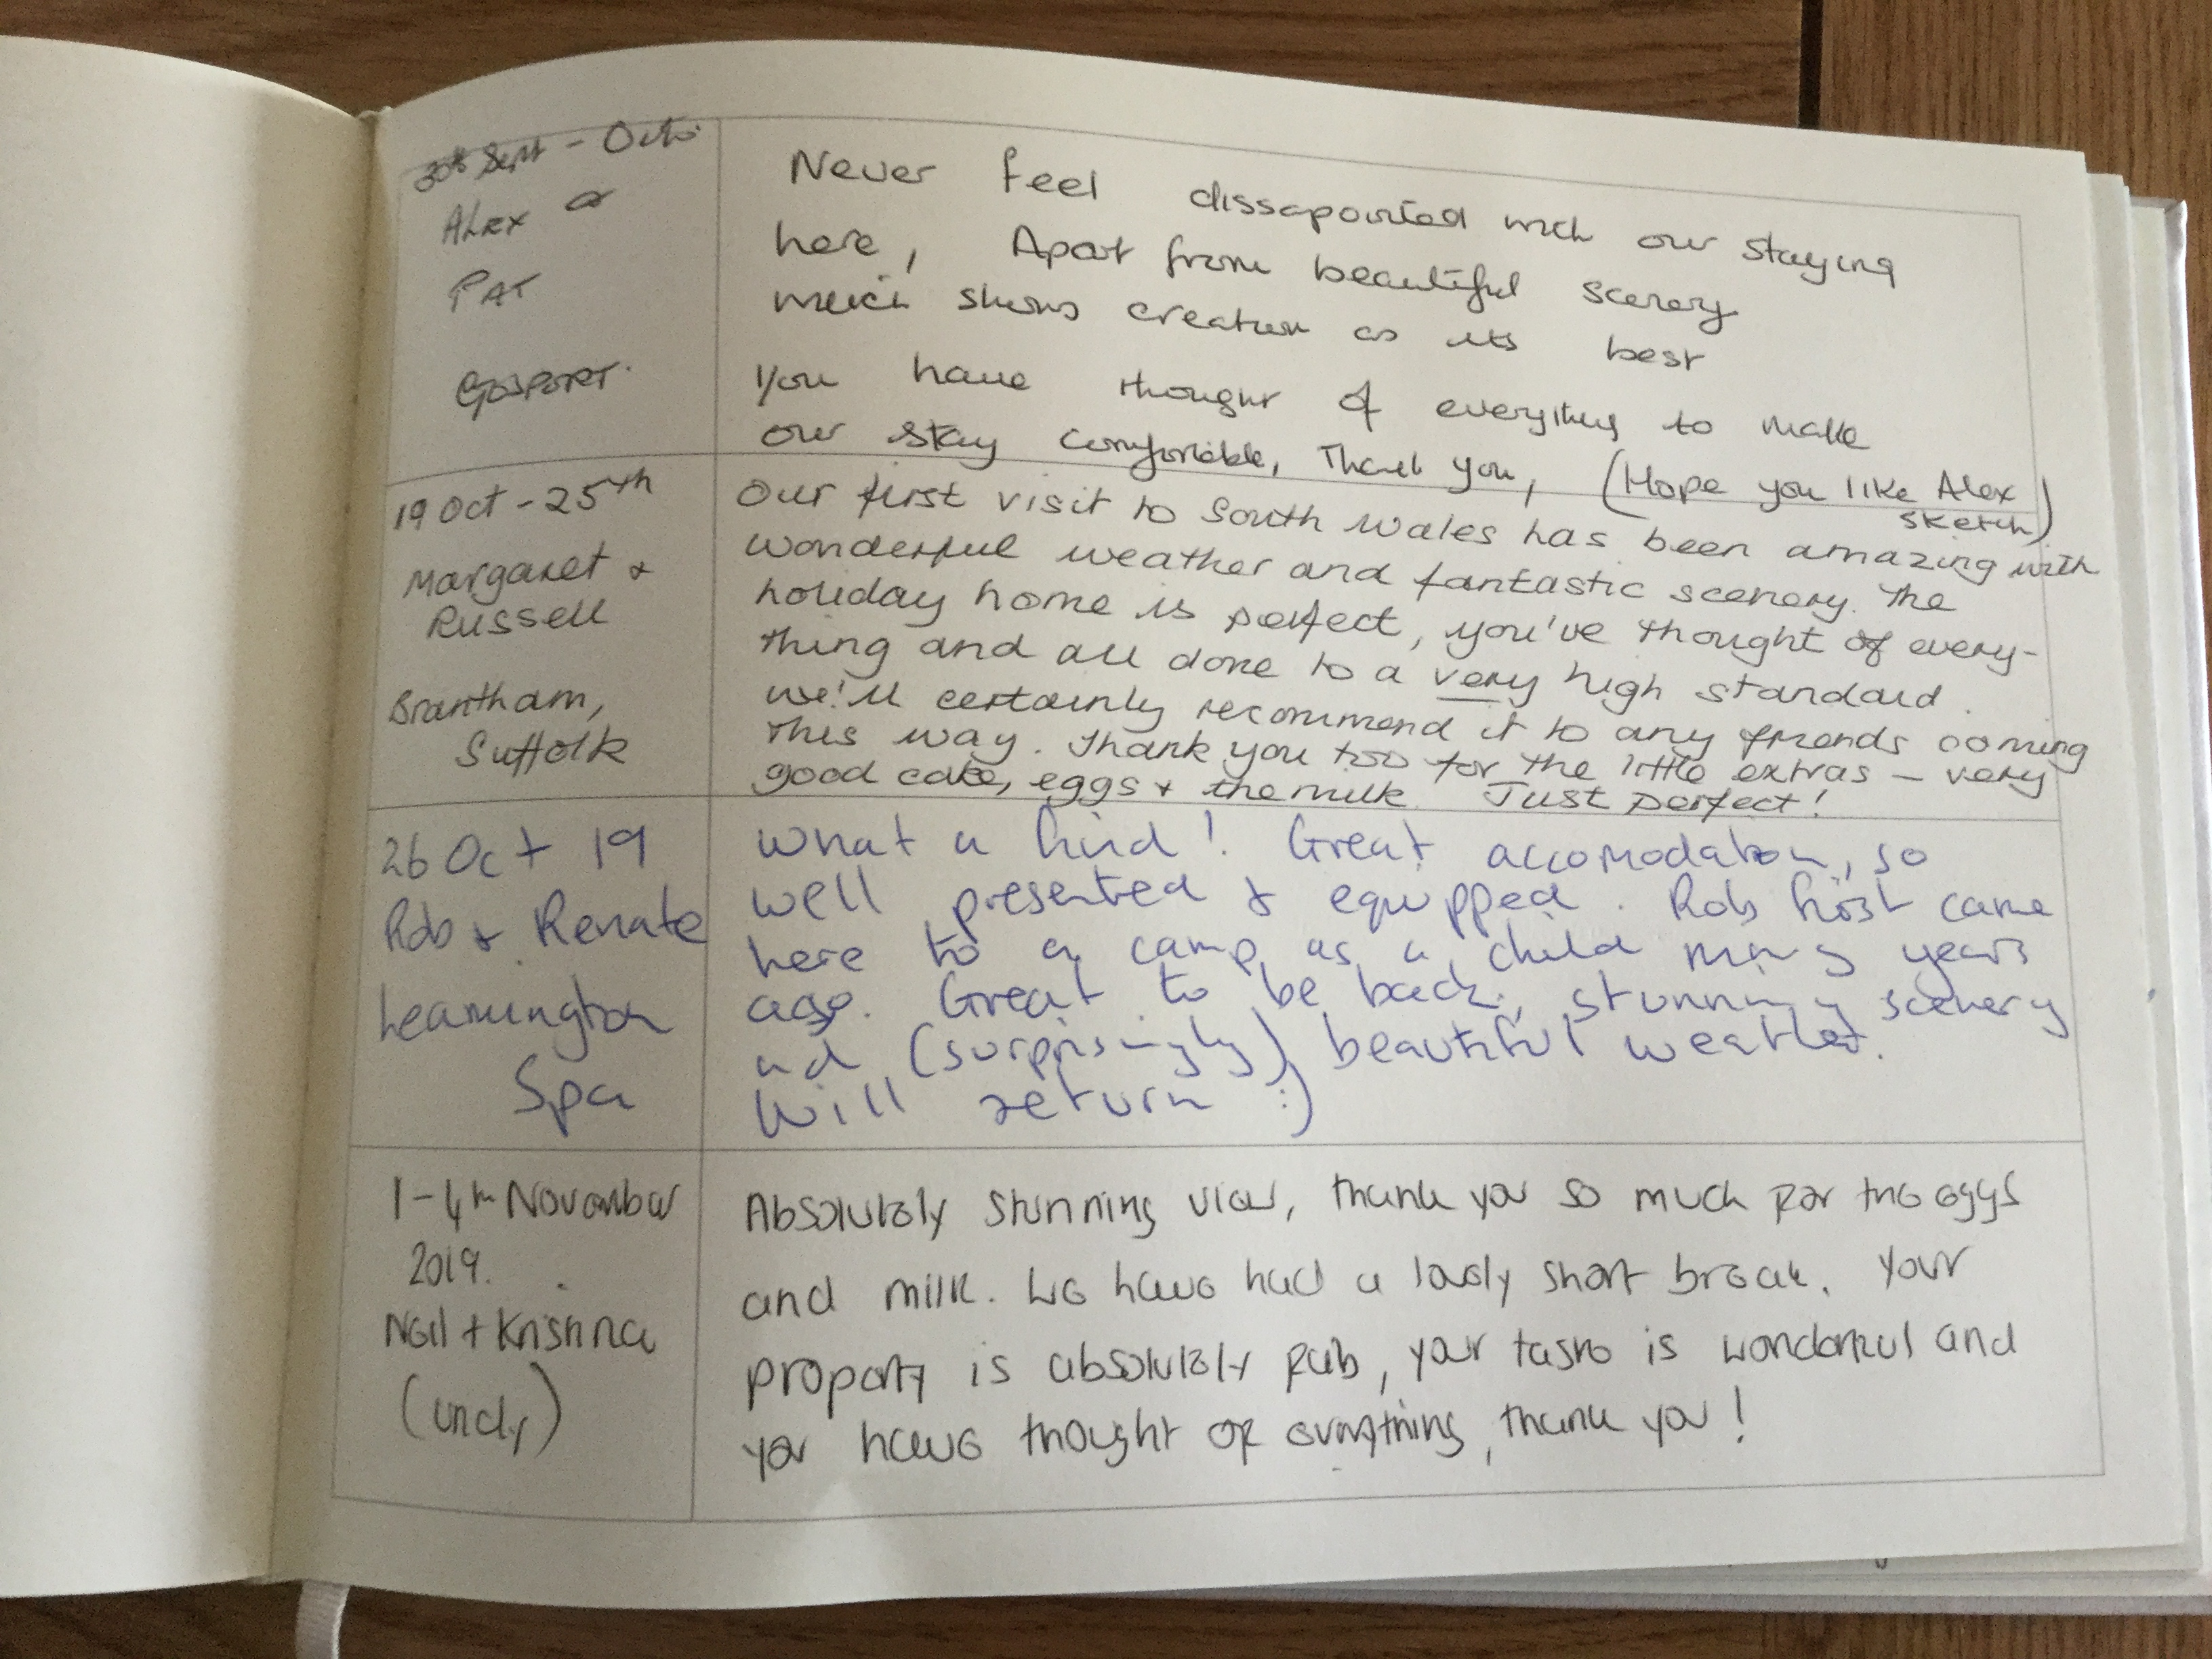 30th Sept - Octo
ALEX &
PAT
GOSPORT.
Never feel dissapointed with our staying
here, Apart from beautiful scenery
which shows creation as its best
You have thought of everything to make
our stay comfortable, Thank you, (Hope you like Alex
sketch)
19 Oct - 25th
Margaret &
Russell
Brantham,
Suffolk
Our first visit to South Wales has been amazing with
wonderful weather and fantastic scenery. The
holiday home is perfect, you've thought of every-
thing and all done to a very high standard.
We'll certainly recommend it to any friends coming
this way. Thank you too for the little extras – very
good cake, eggs & the milk. Just perfect!
26 Oct 19
Rob & Renate
Leamington
Spa
What a find! Great accomodation, so
well presented & equipped. Rob first came
here to a camp as a child many years
ago. Great to be back, stunning scenery
and (surprisingly) beautiful weather.
Will return :)
1-4th November
2019.
Neil + Krishna
(Undy)
Absolutely stunning view, thank you so much for the eggs
and milk. We have had a lovely short break. Your
property is absolutely fab, your taste is wonderful and
you have thought of everything, thank you!